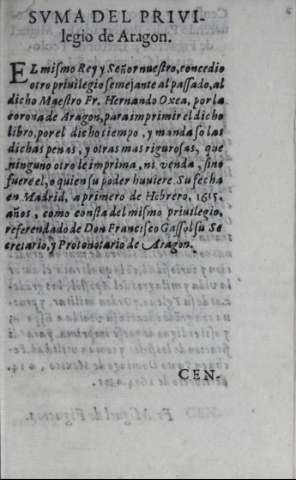 SVMA DEL PRIVI-
legio de Aragon.
EL mismo Rey y Señor nuestro, concedio
otro priuilegio semejante al passado, al
dicho Maestro Fr. Hernando Oxea, por la
corona de Aragon, para imprimir el dicho
libro, por el dicho tiempo, y manda so las
dichas penas, y otras mas rigurosas, que
ninguno otro le imprima, ni venda, sino
fuere el, o quien su poder huuiere. Su fecha
en Madrid, a primero de Hebrero, 1615.
años, como consta del mismo priuilegio,
referendado de Don Francisco Gassol su Se
cretario, y Protonotario de Aragon.
CEN-